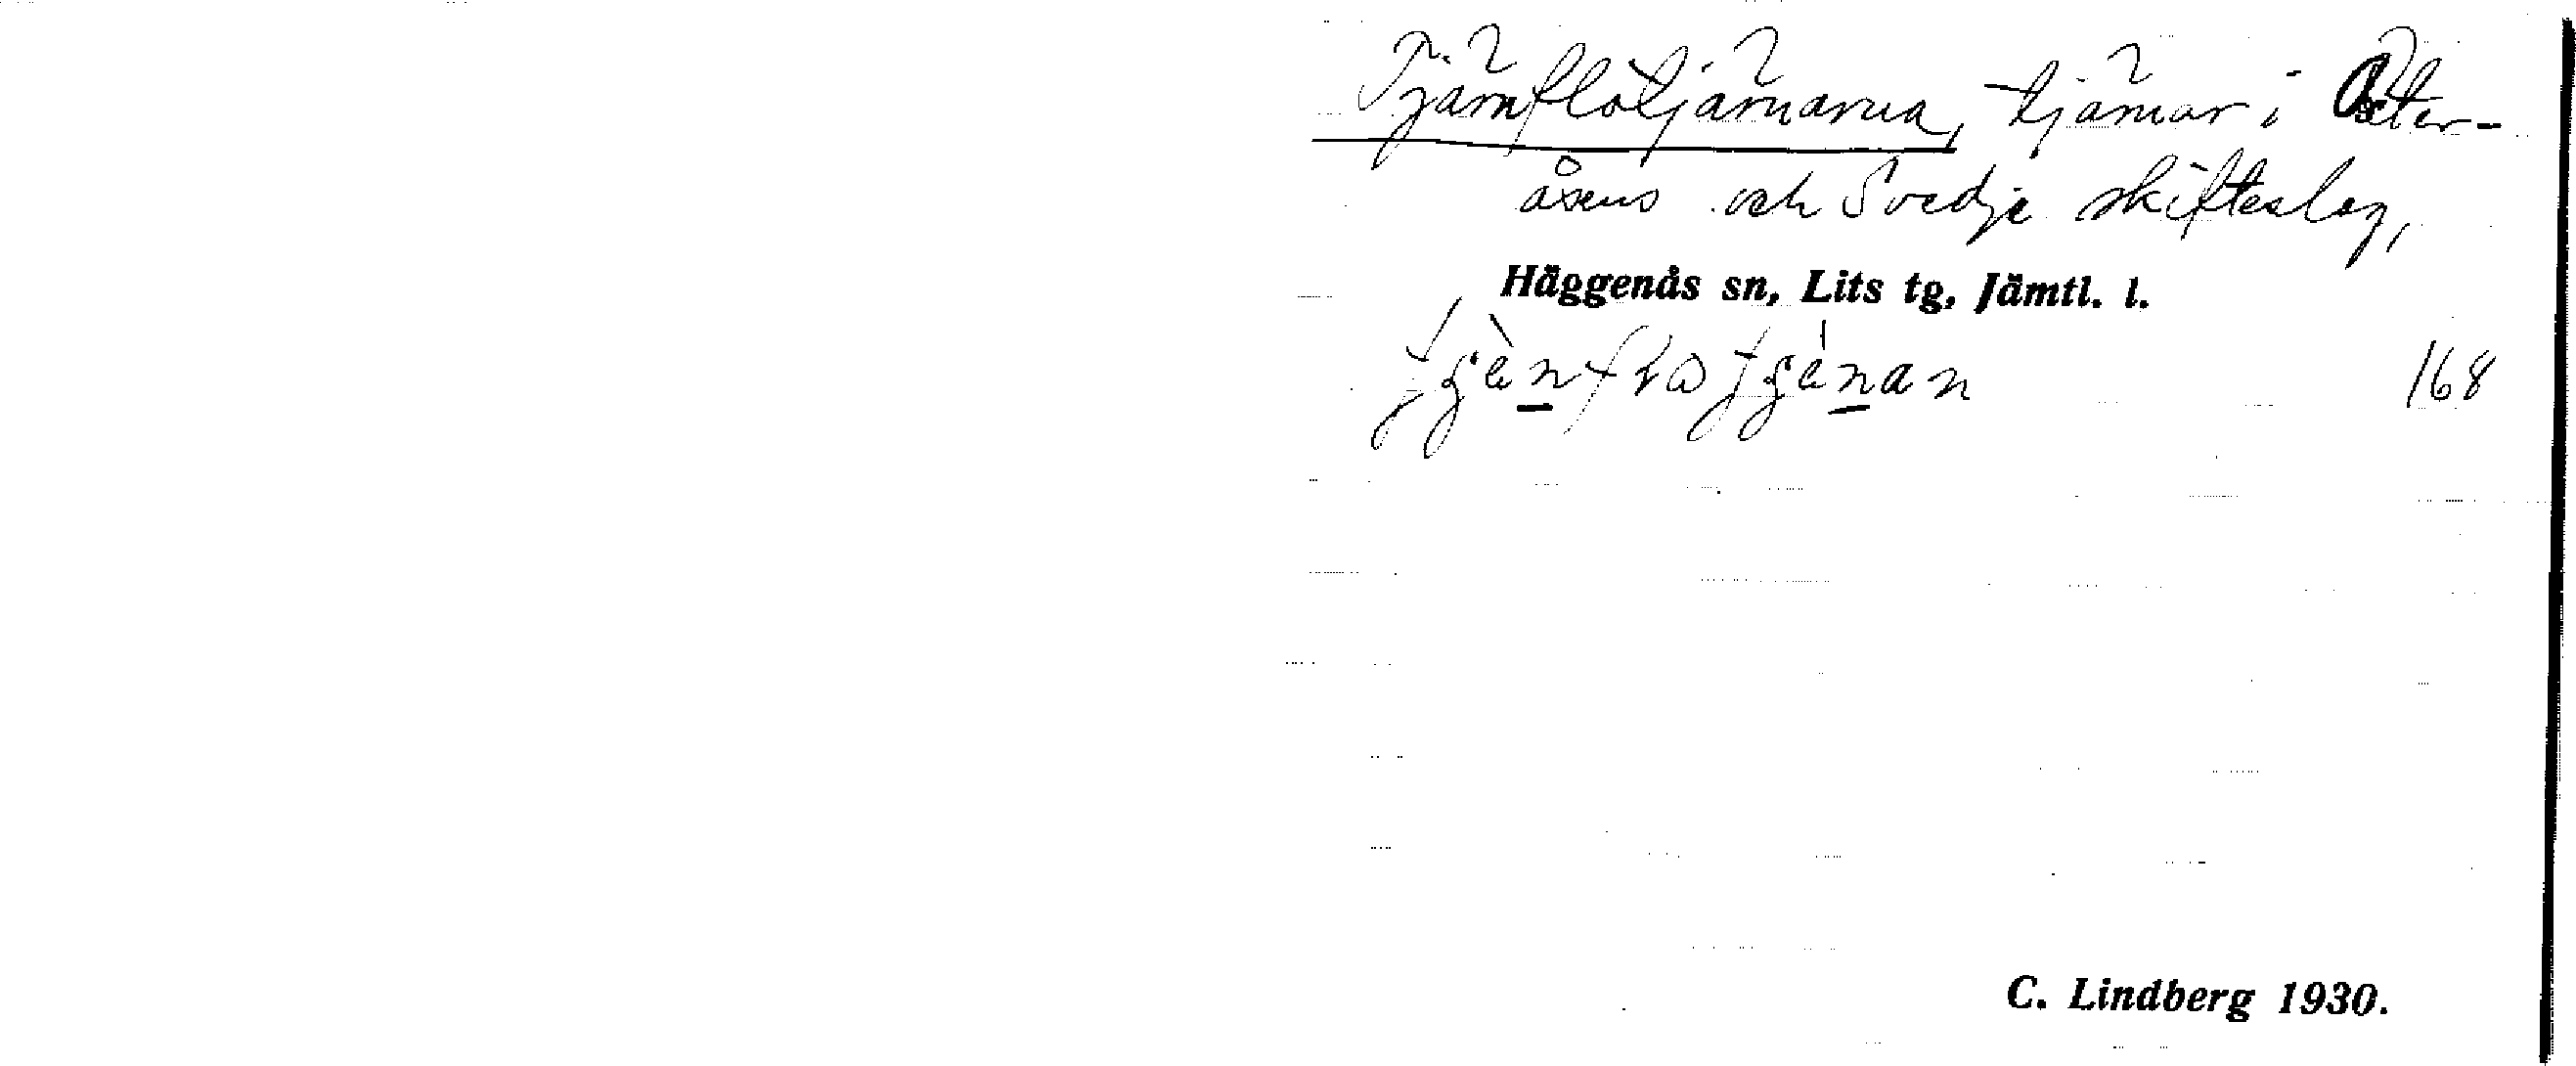 Tjärnflötjärnarna, tjärnar i Öster-
åsens och Svedje skifteslag,
Häggenås sn, Lits tg, Jämtl. l.
168
C. Lindberg 1930.